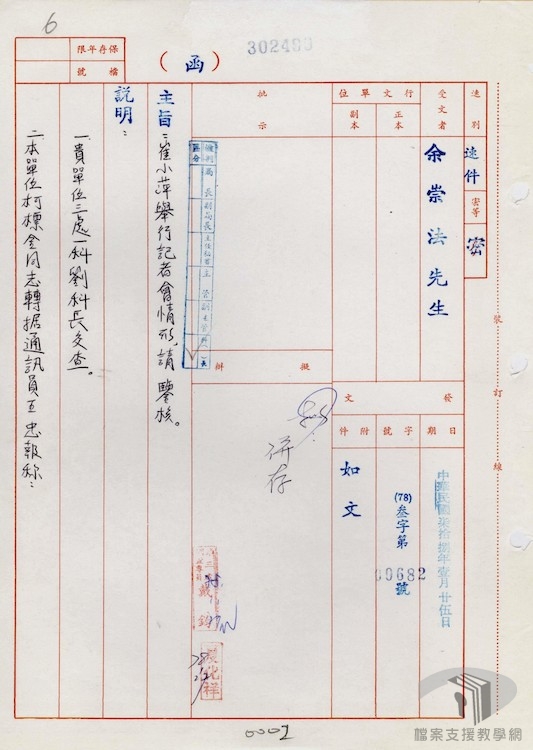 6
302403
(函)
保存年限
檔號
速別
速件
密等
密
受文者
余崇法先生
行文單位
正本
副本
批示
擬辦
發文
日期
中華民國柒拾捌年壹月廿伍日
字號
(78)叁字第00682號
附件
如文
裝
訂
線
併存
主旨:崔小萍舉行記者會情形,請鑒核。
説明:
一貴單位三處一科劉科長交查。
二本單位柯標金同志轉据通訊員王忠報称:
0001
檔案支援教學網